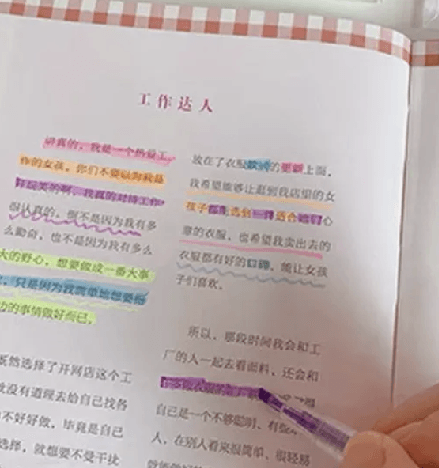 工作达人
讲真的，我是一个热爱工
作的女孩。你们不要以为我是
开玩笑的啊，我真的对待工作
很认真的。倒不是因为我有多
么勤奋，也不是因为我有多么
大的野心，想要做成一番大事
，只是因为我简单地想要把
边的事情做好而已。
既然选择了开网店这个工
就没有道理去给自己找各
不好好做。毕竟是自己
选择，就想要不是干扰
放在了衣服款式的更新上面，
我希望能够让逛到我店里的女
孩子都能选到一件适合她们心
意的衣服，也希望我卖出去的
衣服都有好的口碑，能让女孩
子们喜欢。
所以，那段时间我会和工
厂的人一起去看面料，还会和
自己是一个不够聪明、有
人，在别人看来很简单、很轻易